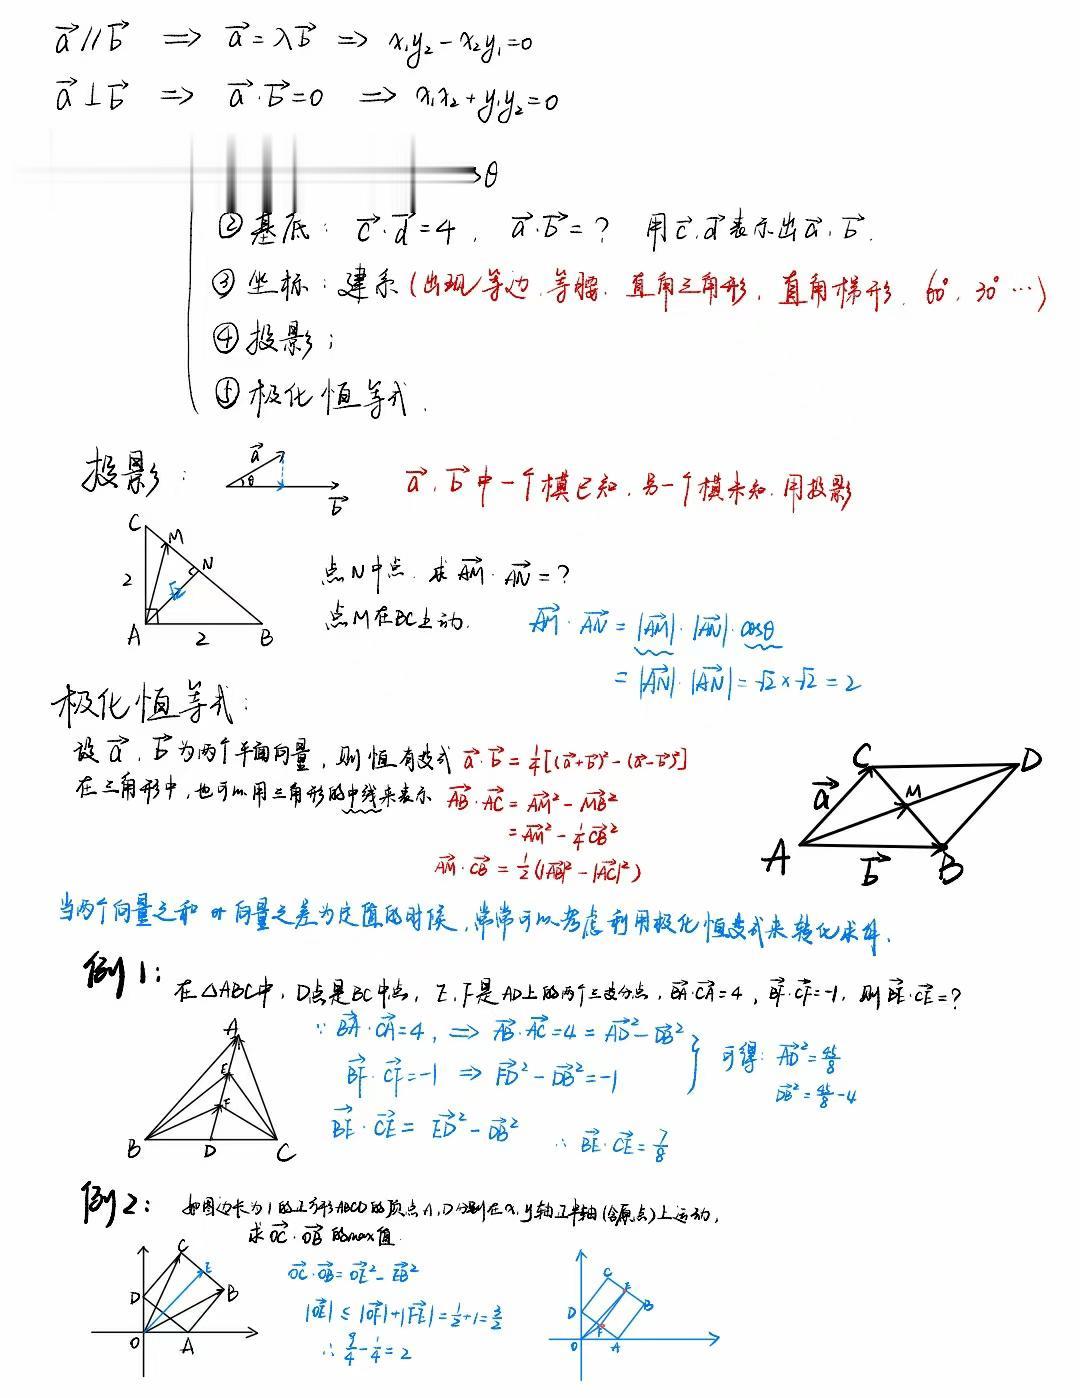 a⃗ // b⃗ ⇒ a⃗ = λb⃗ ⇒ x₁y₂ - x₂y₁ = 0
a⃗ ⊥ b⃗ ⇒ a⃗ · b⃗ = 0 ⇒ x₁x₂ + y₁y₂ = 0
θ
② 基底: c⃗ · d⃗ = 4, a⃗ · b⃗ = ? 用c⃗, d⃗表示出a⃗, b⃗.
③ 坐标: 建系(出现等边、等腰、直角三角形, 直角梯形, 60°, 30° ⋯)
④ 投影;
⑤ 极化恒等式.
投影:
a⃗
θ
b⃗
a⃗, b⃗中一个模已知, 另一个模未知, 用投影
C
M
N
2
√2
A
2
B
点N中点. 求AM⃗ · AN⃗ = ?
点M在BC上动.
AM⃗ · AN⃗ = |AM⃗| · |AN⃗| · cosθ
= |AN⃗| · |AN⃗| = √2 × √2 = 2
极化恒等式:
设a⃗, b⃗为两个平面向量, 则恒有等式 a⃗ · b⃗ = ¼[(a⃗+b⃗)² - (a⃗-b⃗)²]
在三角形中, 也可以用三角形的中线来表示 AB⃗ · AC⃗ = AM⃗² - MB⃗²
= AM⃗² - ¼CB⃗²
AM⃗ · CB⃗ = ½(|AB|² - |AC⃗|²)
C
D
a⃗
M
A
b⃗
B
当两个向量之和 or 向量之差为定值的时候, 常常可以考虑利用极化恒等式来转化求解.
例1:
在△ABC中, D点是BC中点, E, F是AD上的两个三等分点, BA⃗ · CA⃗ = 4, BF⃗ · CF⃗ = -1, 则BE⃗ · CE⃗ = ?
A
E
F
B
D
C
∵ BA⃗ · CA⃗ = 4, ⇒ AB⃗ · AC⃗ = 4 = AD⃗² - DB⃗²
BF⃗ · CF⃗ = -1 ⇒ FD⃗² - DB⃗² = -1
可得: AD⃗² = 45/8
DB⃗² = 45/8 - 4
BE⃗ · CE⃗ = ED⃗² - DB⃗²
∴ BE⃗ · CE⃗ = 7/8
例2:
如图边长为1的正方形ABCD的顶点A, D分别在x, y轴正半轴(含原点)上运动,
求OC⃗ · OB⃗的max值.
C
E
D
B
O
A
OC⃗ · OB⃗ = OE⃗² - EB⃗²
|OE⃗| ≤ |OF⃗| + |FE⃗| = ½ + 1 = 3/2
∴ 9/4 - 1/4 = 2
C
E
B
D
F
O
A